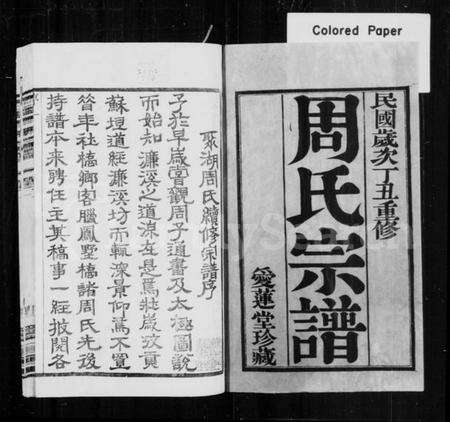 Colored Paper
民國歲次丁丑重修
周氏宗譜
愛蓮堂珍藏
聚湖周氏續修宗譜序
予於早歲嘗觀周子通書及太極圖說
而始知濂溪之道源在是焉壯歲設貢
蘇垣道經濂溪坊而輒深景仰焉不置
昔年社橋鄉客臘鳳墅橋諸周氏先後
持譜本來聘任主其稿事一經披閱各